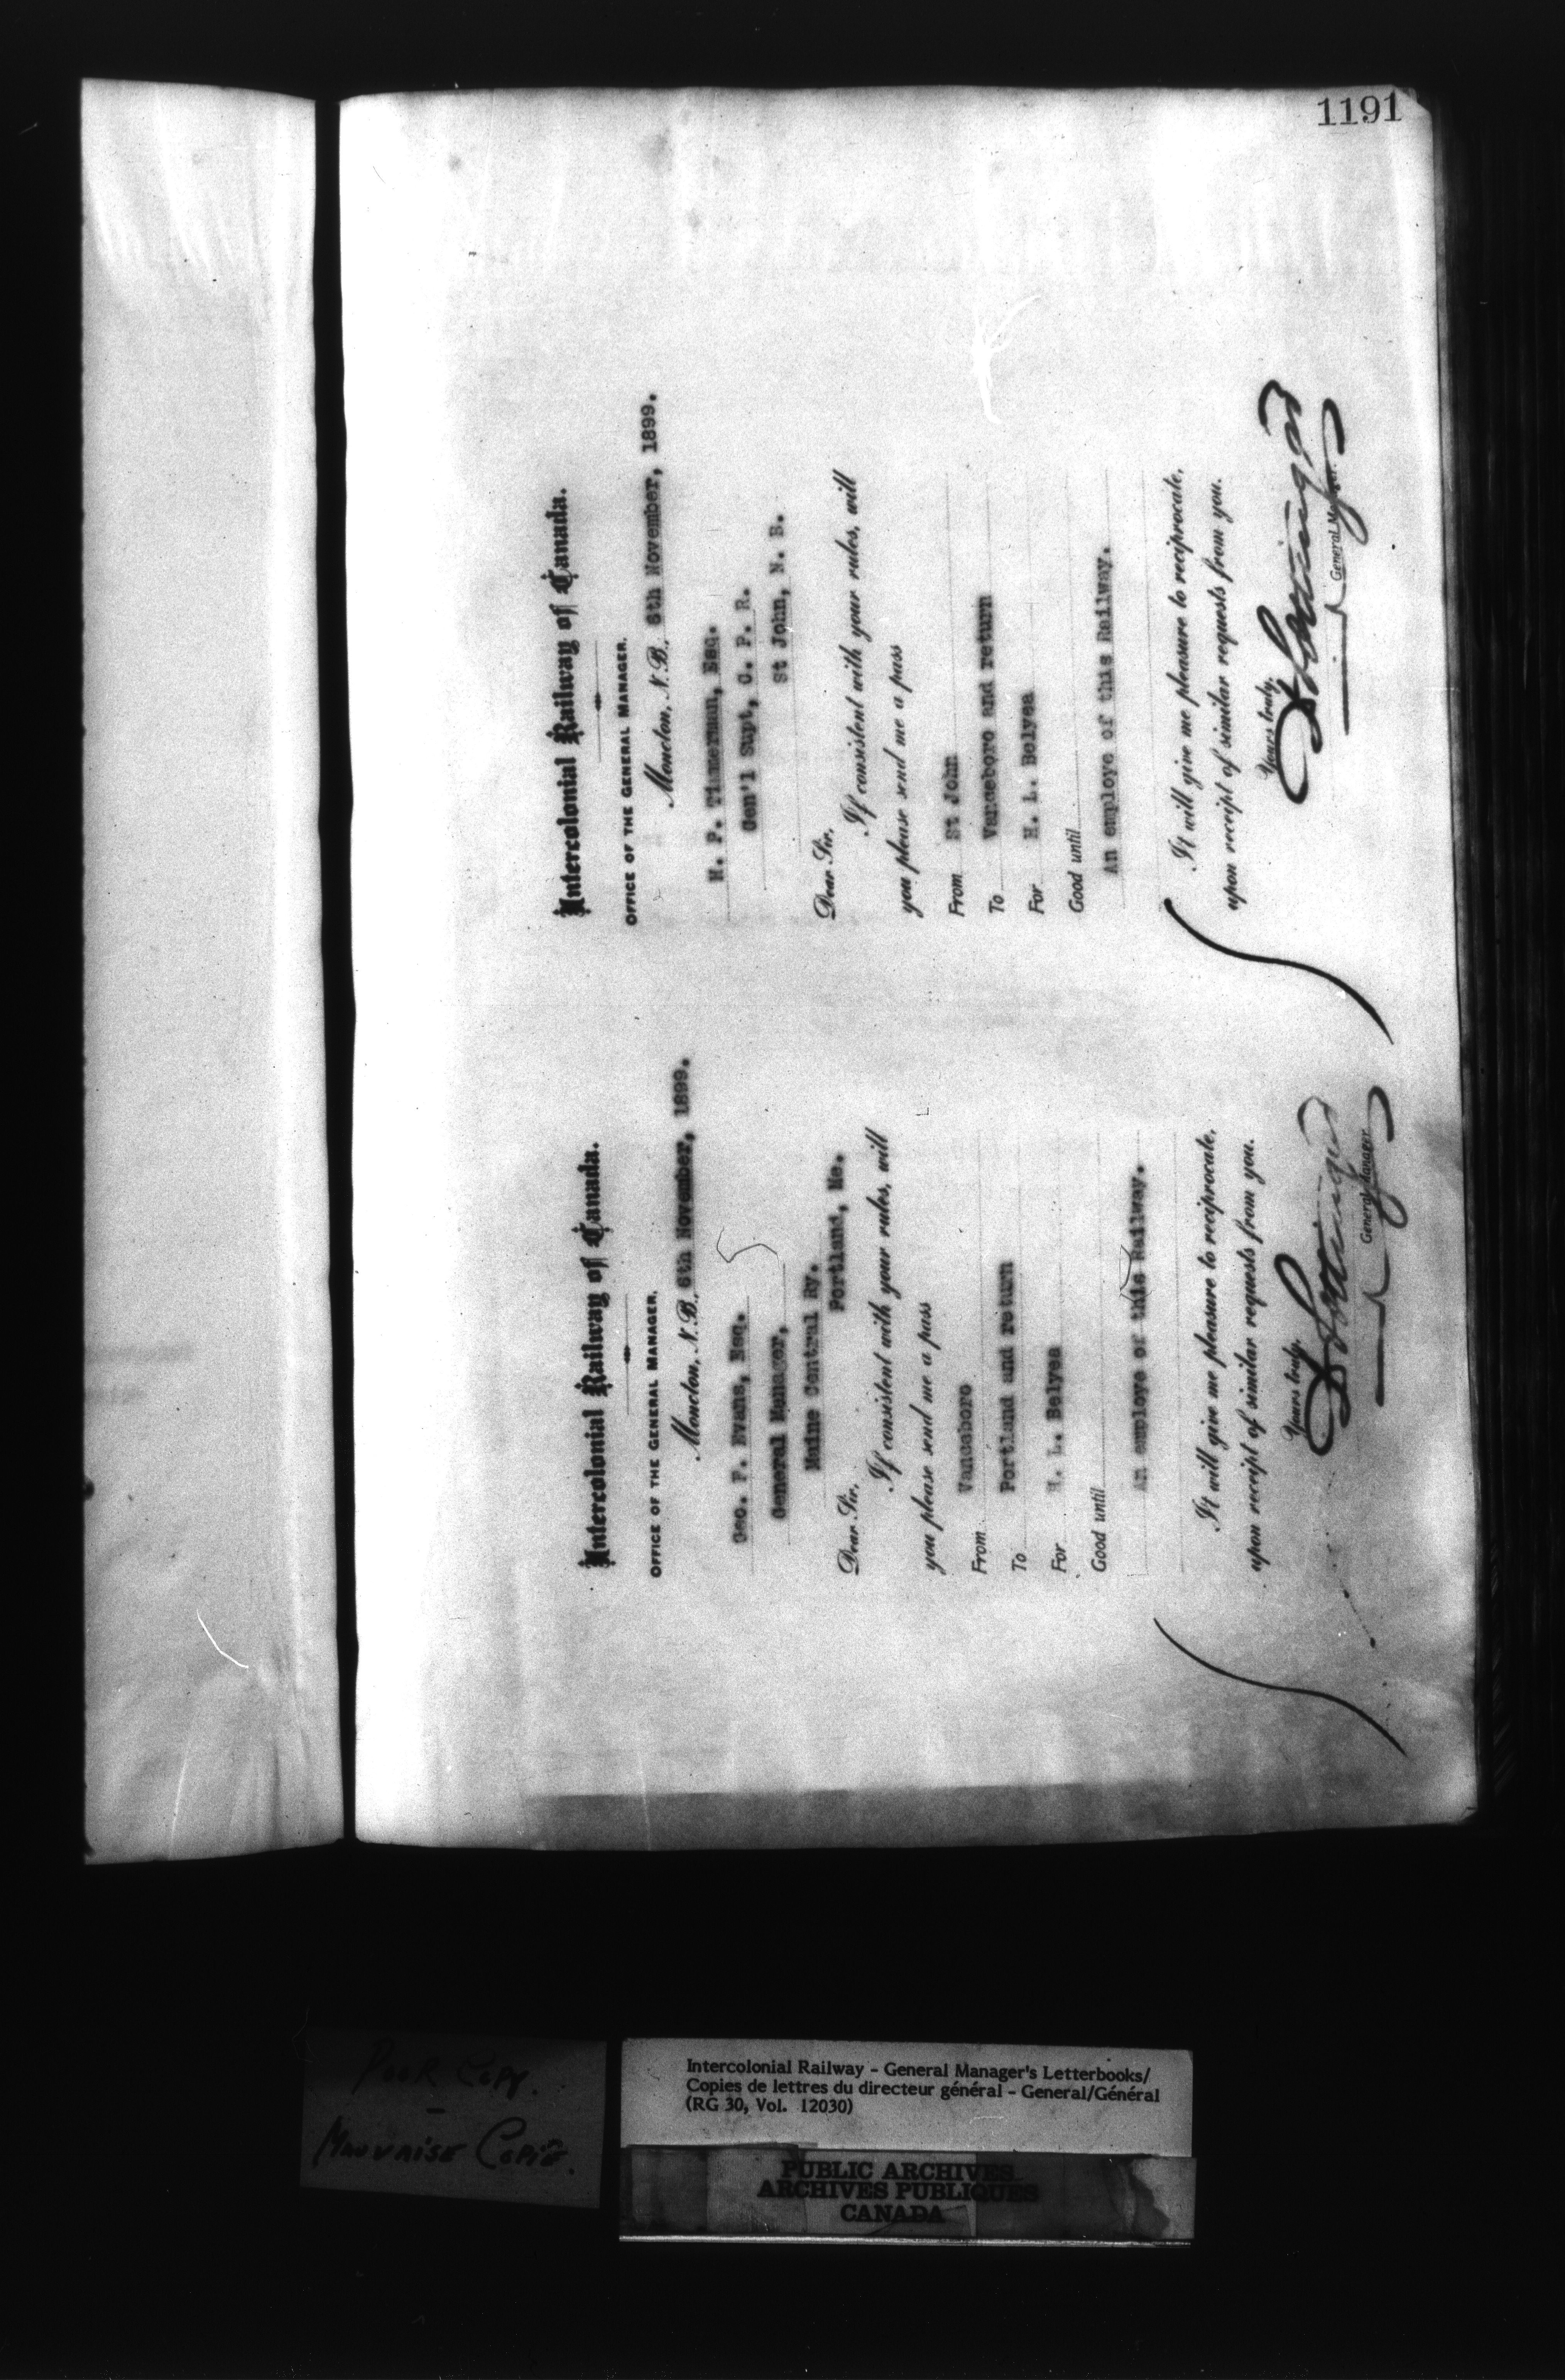 1191
Intercolonial Railway of Canada.
OFFICE OF THE GENERAL MANAGER.
Moncton, N.B., 6th November, 1899.
Geo. F. Evans, Esq.
General Manager,
Maine Central Ry.
Portland, Me.
Dear Sir,
If consistent with your rules, will
you please send me a pass
From Vanceboro
To Portland and return
For H. L. Belyea
Good until
An employe of this Railway.
It will give me pleasure to reciprocate,
upon receipt of similar requests from you.
Yours truly,
General Manager
Intercolonial Railway of Canada.
OFFICE OF THE GENERAL MANAGER.
Moncton, N.B., 6th November, 1899.
H. P. Timmerman, Esq.
Gen'l Supt, C. P. R.
St John, N. B.
Dear Sir,
If consistent with your rules, will
you please send me a pass
From St John
To Vanceboro and return
For H. L. Belyea
Good until
An employe of this Railway.
It will give me pleasure to reciprocate,
upon receipt of similar requests from you.
Yours truly,
General Manager.
POOR COPY.
MAUVAISE COPIE.
Intercolonial Railway - General Manager's Letterbooks/
Copies de lettres du directeur général - General/Général
(RG 30, Vol. 12030)
PUBLIC ARCHIVES
ARCHIVES PUBLIQUES
CANADA